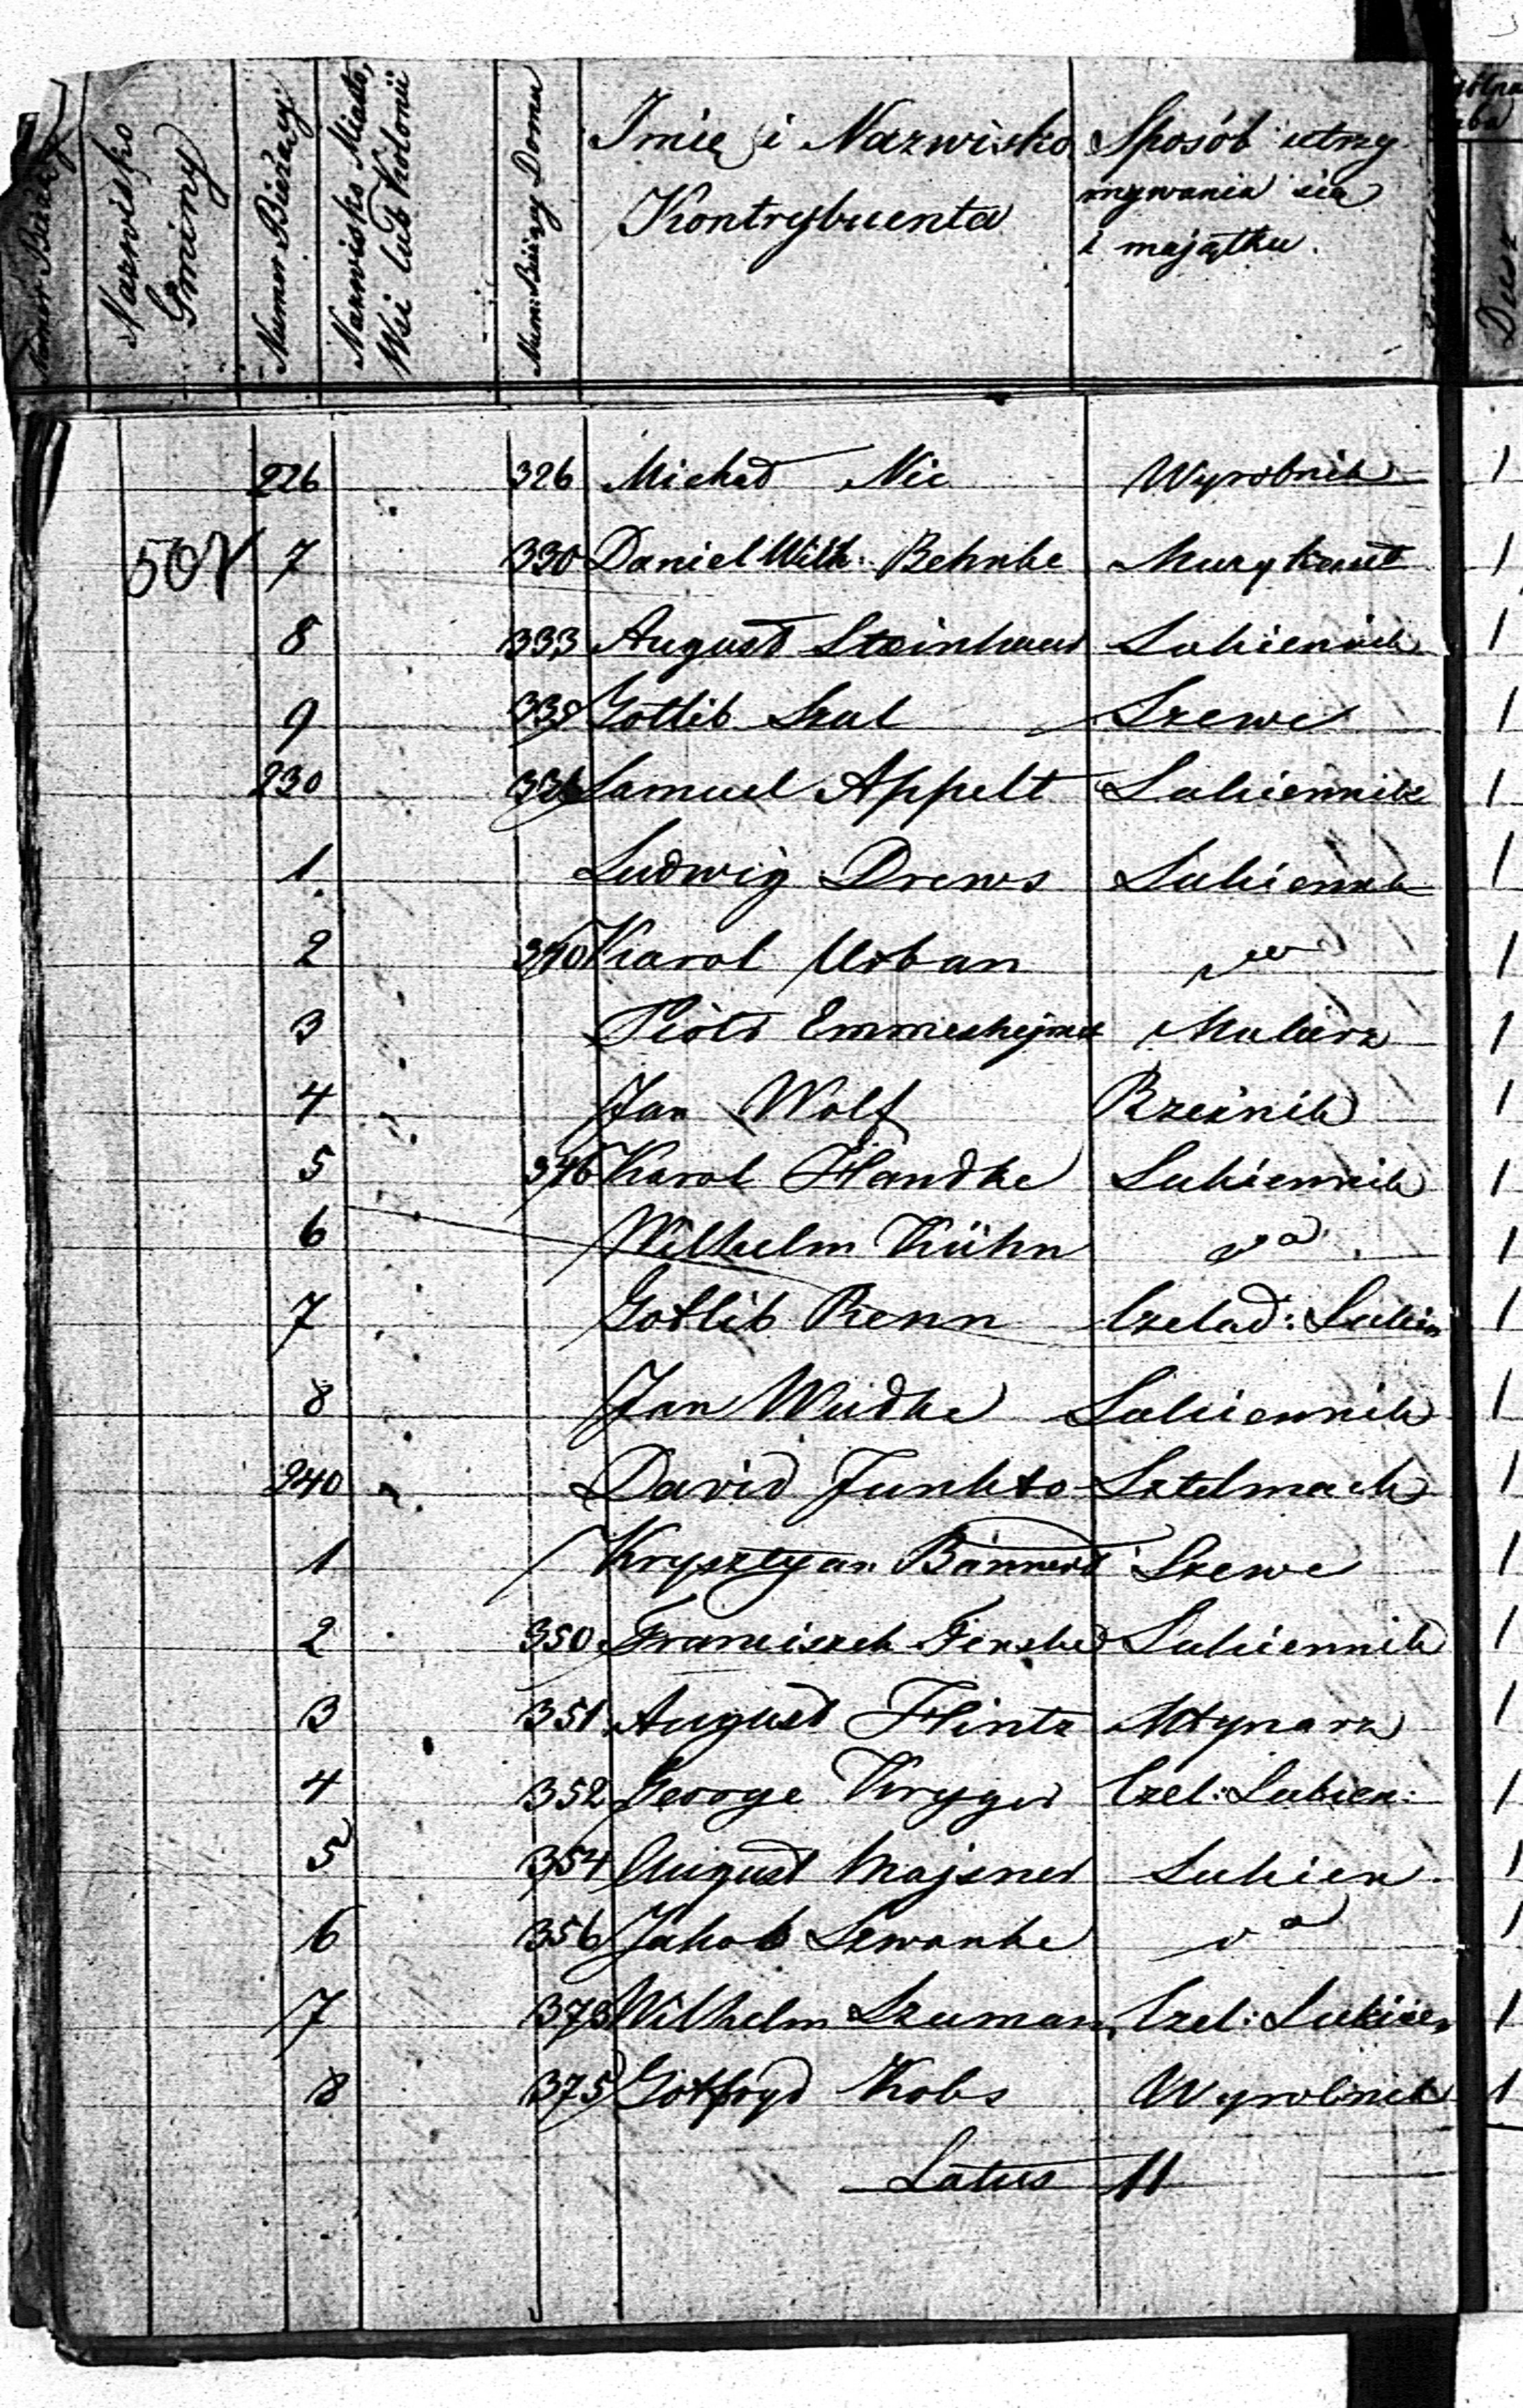 Numer Bieżący
Nazwisko Gminy
Numer Bieżący
Nazwisko Miasta, Wsi lub Kolonii
Num: Bieżący Domu
Imię i Nazwisko Kontrybuenta
Sposób utrzymywania się i majątku.
Dusz
226 326 Michał Nic Wyrobnik 1
507 7 330 Daniel Wilh: Behnke Muzykant 1
8 333 August Steinhauer Sukiennik 1
9 339 Gotlib Szul Szewc 1
230 Samuel Appelt Sukiennik 1
1 Ludwig Drews Sukiennik 1
2 340 Karol Urban 1
3 Piotr Mularz 1
4 Jan Wolf Rzeźnik 1
5 346 Karol Handke Sukiennik 1
6 Wilhelm Kühn do 1
7 Gotlib Renn Czelad: Sukien 1
8 Jan Wudke Sukiennik 1
240 David Sztelmach 1
1 Krysztyan Szewc 1
2 350 Franciszek Sukiennik 1
3 351 August Hintz Młynarz 1
4 352 George Kryger Czel: Sukien: 1
5 354 August Majsner Sukien 1
6 356 Jakob Szwanke do 1
7 373 Wilhelm Szuman Czel: Sukien 1
8 375 Gotfryd Kobs Wyrobnik 1
Latus 11